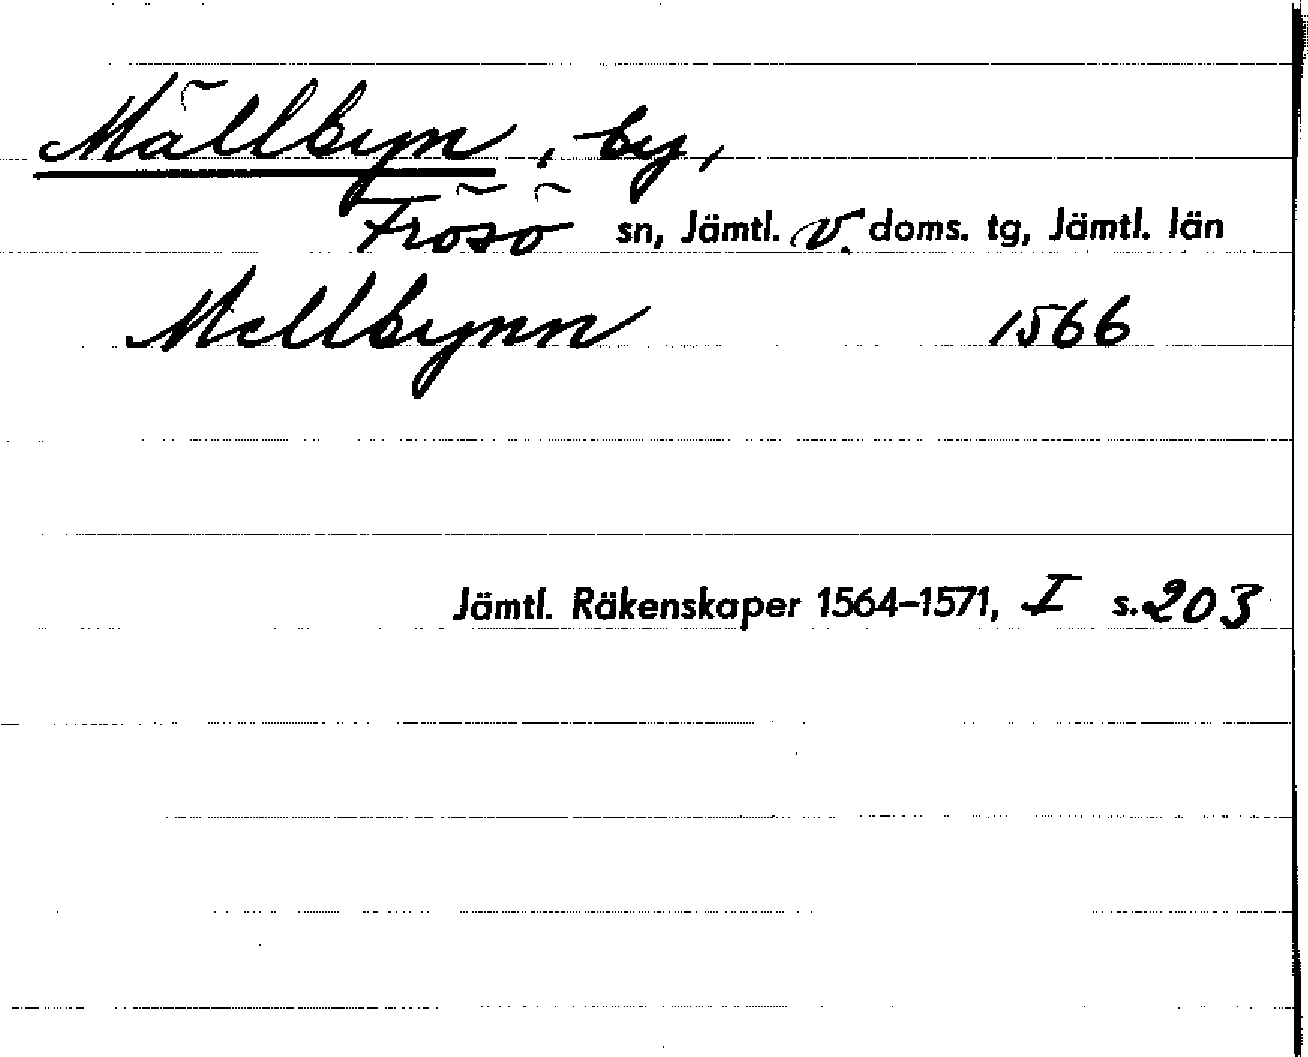 Mällbyn, by,
Frösö sn, Jämtl. v. doms. tg, Jämtl. län
Mellbynn 1566
Jämtl. Räkenskaper 1564-1571, I s. 203